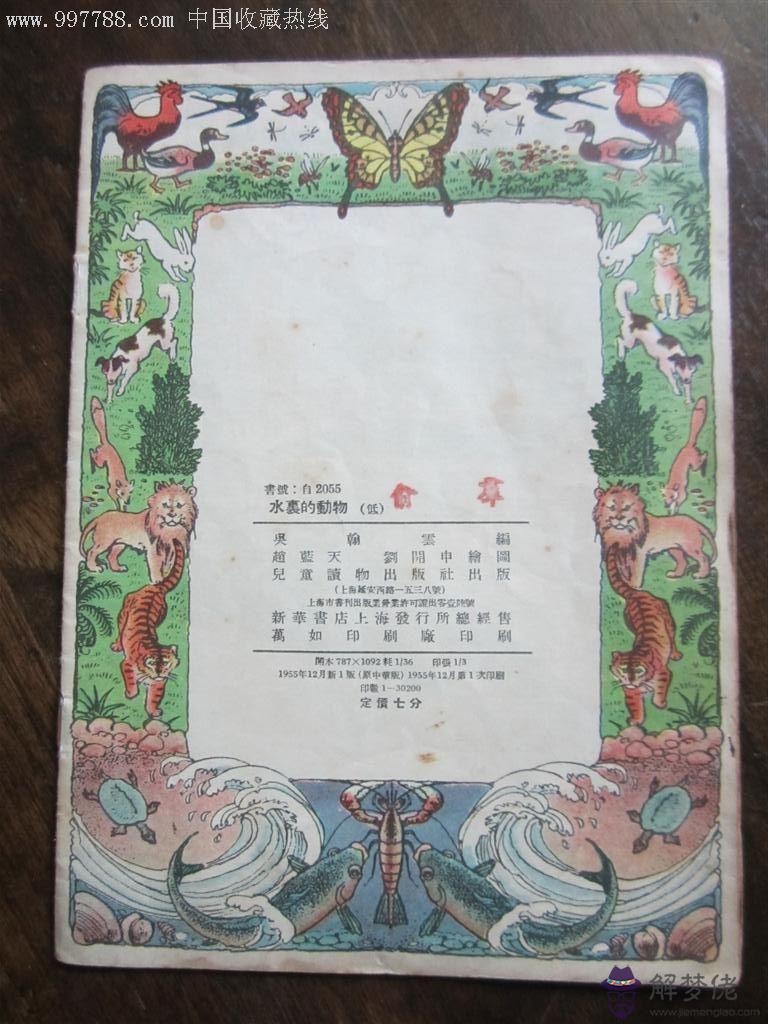 www.997788.com 中国收藏热线
書號：自2055
水裏的動物 (低)
吳翰雲編
趙藍天 劉開申繪圖
兒童讀物出版社出版
(上海延安西路一五三八號)
上海市書刊出版業營業許可證出零壹陸號
新華書店上海發行所總經售
萬如印刷廠印刷
開本787×1092耗1/36 印張1/3
1955年12月新1版(原中華版)1955年12月第1次印刷
印數1—30200
定價七分
解梦佬
www.jiemenglao.com